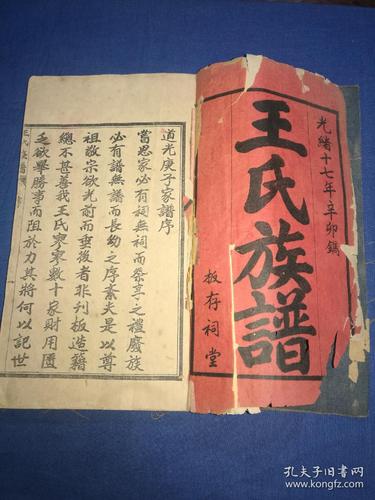 光緒十七年辛卯鐫
王氏族譜
板存祠堂
道光庚子家譜序
當思家必有祠無祠而祭享之禮廢族
必有譜無譜而長幼之序紊夫是以尊
祖敬宗欲光前而垂後者非刊板造籍
總不甚善我王氏寥寥數十家財用匱
乏欲舉勝事而阻於力其將何以記世
王氏族譜
孔夫子旧书网
www.kongfz.com